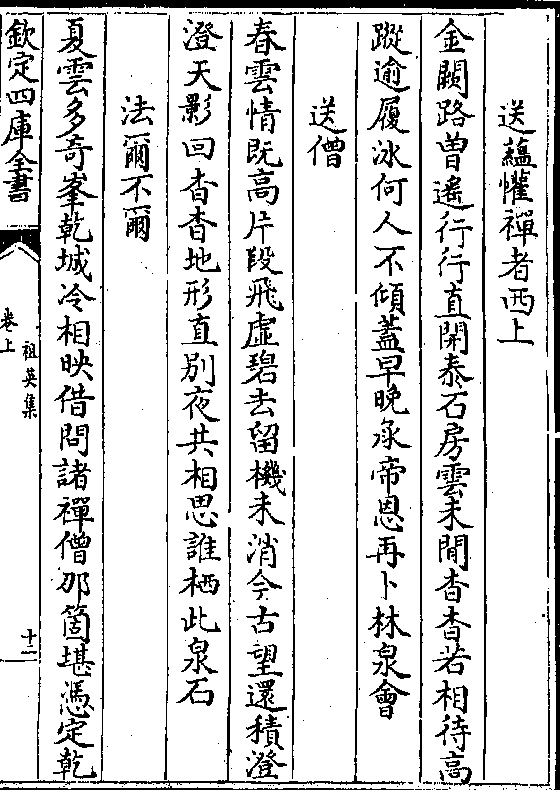 送蘊懽禪者西上
金闕路曾遙行行直開泰石房雲未閒杳杳若相待高
蹤逾履冰何人不傾蓋早晚承帝恩再卜林泉會
送僧
春雲情既高片段飛虛碧去留機未消今古望還積澄
澄天影回杳杳地形直別夜共相思誰栖此泉石
法爾不爾
夏雲多奇峯乾城冷相映借問諸禪僧那箇堪憑定乾
欽定四庫全書
祖英集
卷上
十二